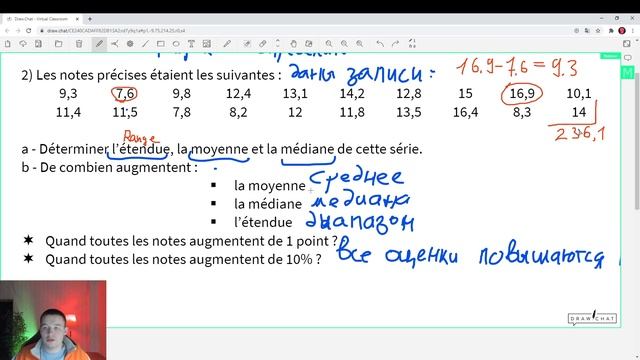 Draw.Chat - Virtual Classroom
2) Les notes précises étaient les suivantes : даны записи :
16.9-7.6 = 9.3
9,3 7,6 9,8 12,4 13,1 14,2 12,8 15 16,9 10,1
11,4 11,5 7,8 8,2 12 11,8 13,5 16,4 8,3 14
236,1
Range
a - Déterminer l'étendue, la moyenne et la médiane de cette série.
b - De combien augmentent :
la moyenne среднее
la médiane медиана
l'étendue диапазон
Quand toutes les notes augmentent de 1 point ?
Quand toutes les notes augmentent de 10% ? все оценки повышаются
DRAW CHAT